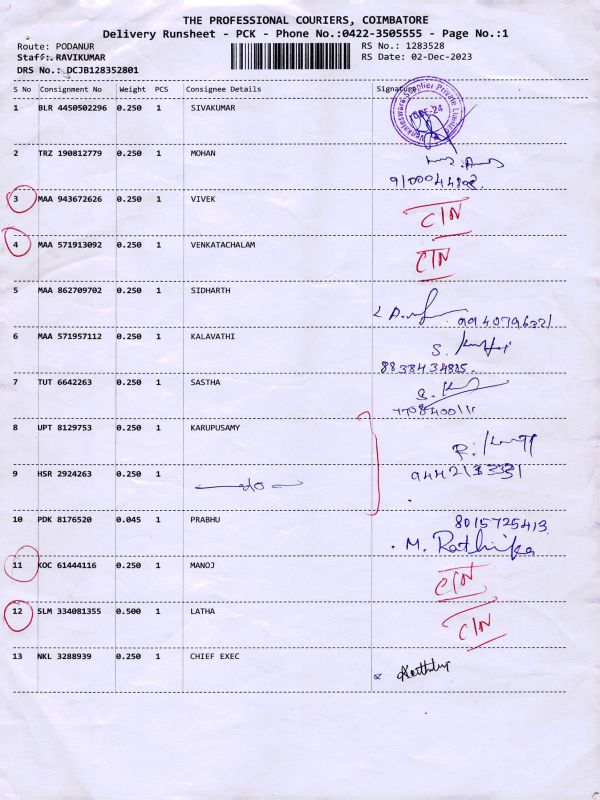 THE PROFESSIONAL COURIERS, COIMBATORE
Delivery Runsheet - PCK - Phone No.:0422-3505555 - Page No.:1
Route: PODANUR RS No.: 1283528
Staff: RAVIKUMAR RS Date: 02-Dec-2023
DRS No.: DCJB128352801
S No Consignment No Weight PCS Consignee Details Signature
1 BLR 4450502296 0.250 1 SIVAKUMAR
2 TRZ 190812779 0.250 1 MOHAN
3 MAA 943672626 0.250 1 VIVEK C/N
4 MAA 571913092 0.250 1 VENKATACHALAM C/N
5 MAA 862709702 0.250 1 SIDHARTH
9940796321
6 MAA 571957112 0.250 1 KALAVATHI
8838434825
7 TUT 6642263 0.250 1 SASTHA
8 UPT 8129753 0.250 1 KARUPUSAMY
9 HSR 2924263 0.250 1 do
10 PDK 8176520 0.045 1 PRABHU 8015725413
M. Rathika
11 KOC 61444116 0.250 1 MANOJ C/N
12 SLM 334081355 0.500 1 LATHA C/N
13 NKL 3288939 0.250 1 CHIEF EXEC